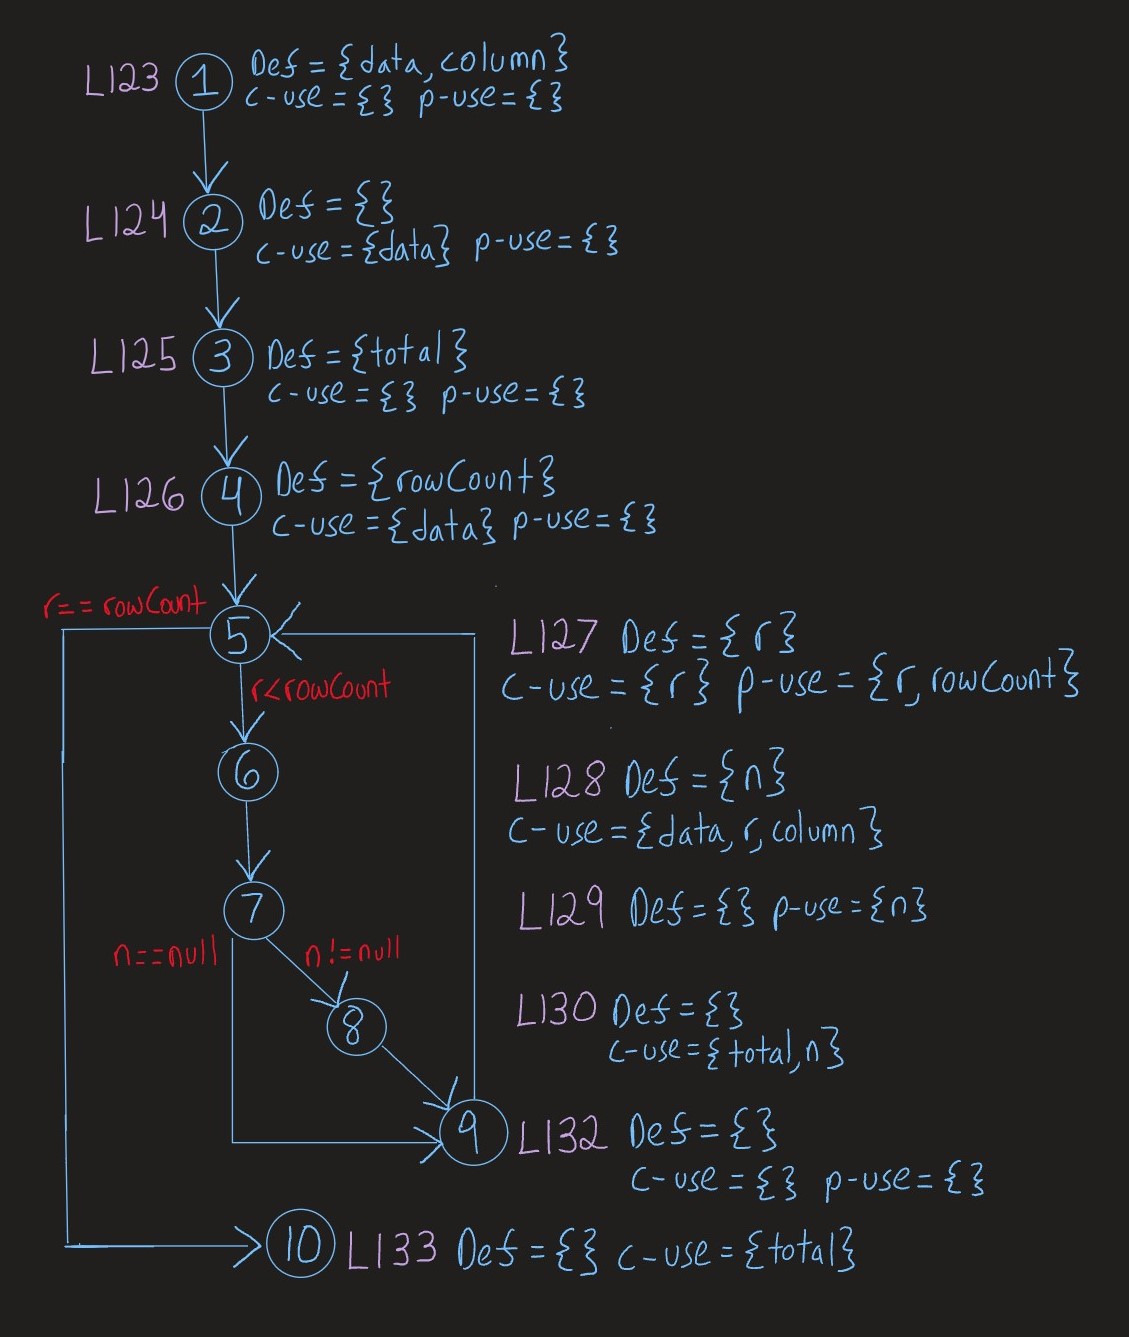 L123 1 Def = {data, column}
c-use = {} p-use = {}
L124 2 Def = {}
c-use = {data} p-use = {}
L125 3 Def = {total}
c-use = {} p-use = {}
L126 4 Def = {rowCount}
c-use = {data} p-use = {}
r == rowCount
5 L127 Def = {r}
c-use = {r} p-use = {r, rowCount}
r<rowCount
6 L128 Def = {n}
c-use = {data, r, column}
7 L129 Def = {} p-use = {n}
n==null n!=null
8 L130 Def = {}
c-use = {total, n}
9 L132 Def = {}
c-use = {} p-use = {}
10 L133 Def = {} c-use = {total}